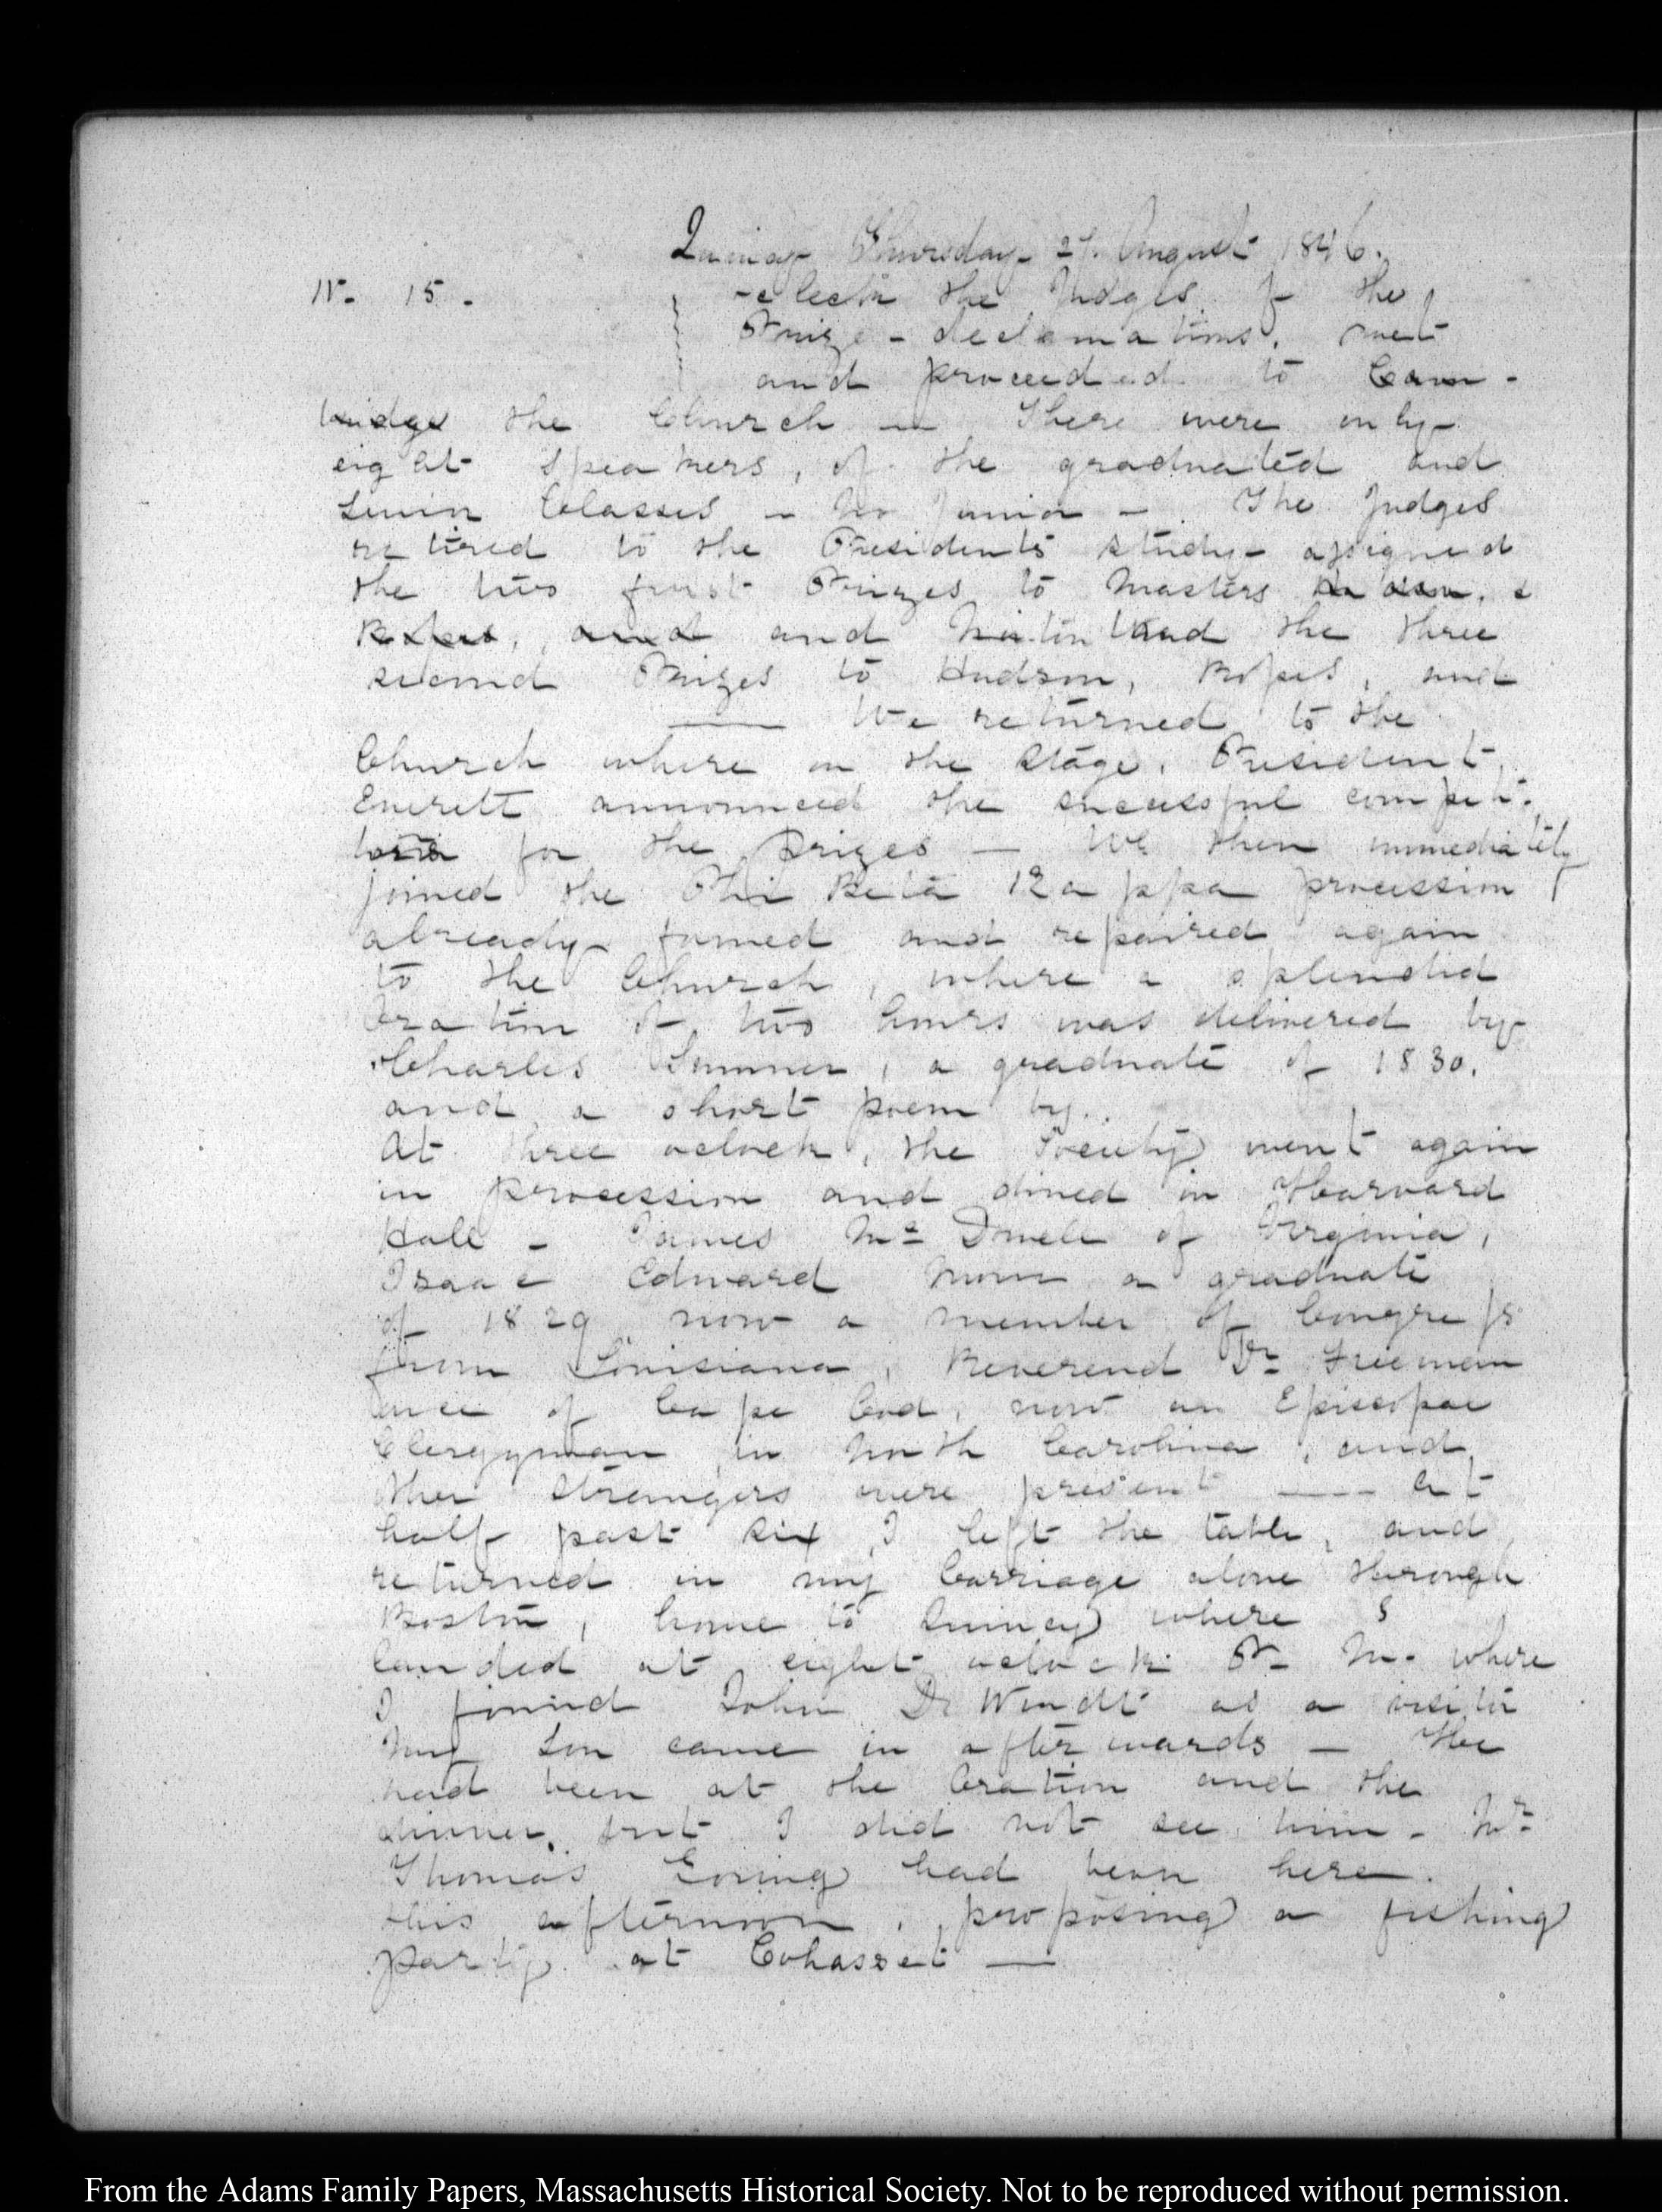 Quincy Thursday 27. August 1846.
IV. 15.
-election the Judges of the
Prize-declamations, met
and proceeded to Cam-
bridge the Church — There were only
eight Speakers, of the graduated and
Senior Classes – No Junior –. The Judges
retired to the Presidents study – assigned
the two first Prizes to Masters &
and and the three
second Prizes to Hudson, Ropes, and
—— We returned to the
Church where on the Stage, President
Everett announced the successful competi-
tors for the Prizes — We then immediately
joined the Phi Beta Kappa procession
already formed and repaired again
to the Church, where a splendid
Oration of two hours was delivered by
Charles Sumner, a graduate of 1830.
and a short poem by.
At three o'clock, the Society went again
in procession and dined in Harvard
Hall – James McDowell of Virginia,
Isaac Edward Morse a graduate
of 1829 now a member of Congress
from Louisiana, Reverend Dr. Freeman
once of Cape Cod, now an Episcopal
Clergyman in North Carolina, and
other strangers were present —— At
half past six I left the table, and
returned in my Carriage alone through
Boston, home to Quincy where I
landed at eight o'clock P. M. where
I found John De Windt as a visitor
My Son came in afterwards — He
had been at the Oration and the
dinner, but I did not see him – Mr
Thomas Ewing had been here
this afternoon, proposing a fishing
party at Cohasset —
From the Adams Family Papers, Massachusetts Historical Society. Not to be reproduced without permission.